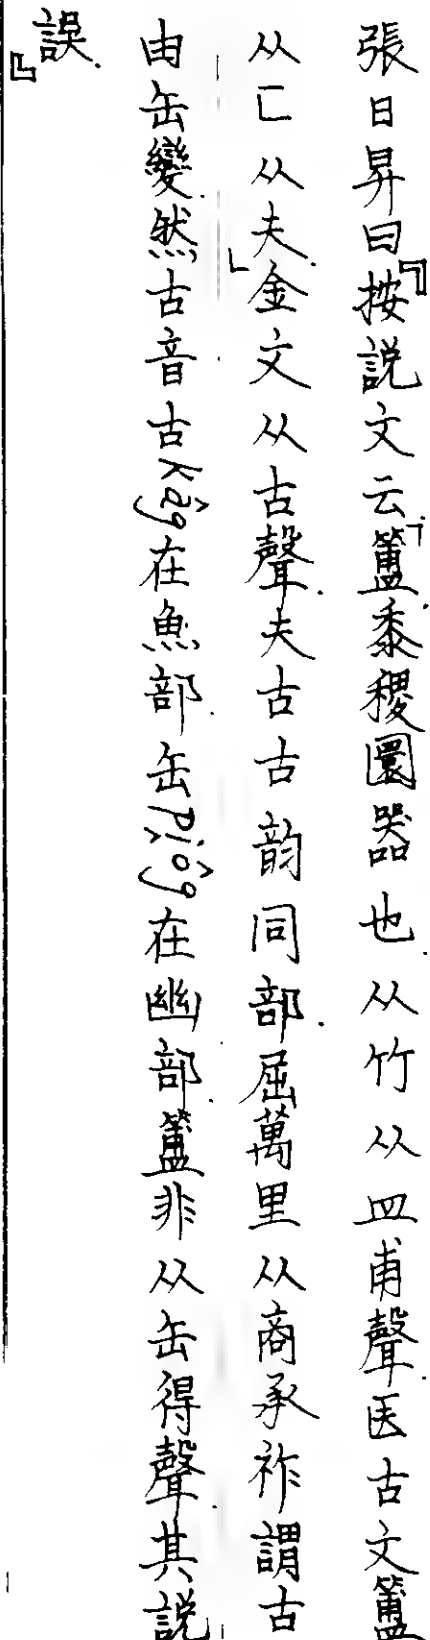 張日昇曰『按説文云「簠.黍稷圜器也.从竹从皿甫聲.医古文簠
从匚从夫.」金文从古聲.夫古古韵同部.屈萬里从商承祚謂古
由缶變.然古音.古kâg在魚部.缶pi̯ôg在幽部.簠非从缶得聲.其説
誤.』